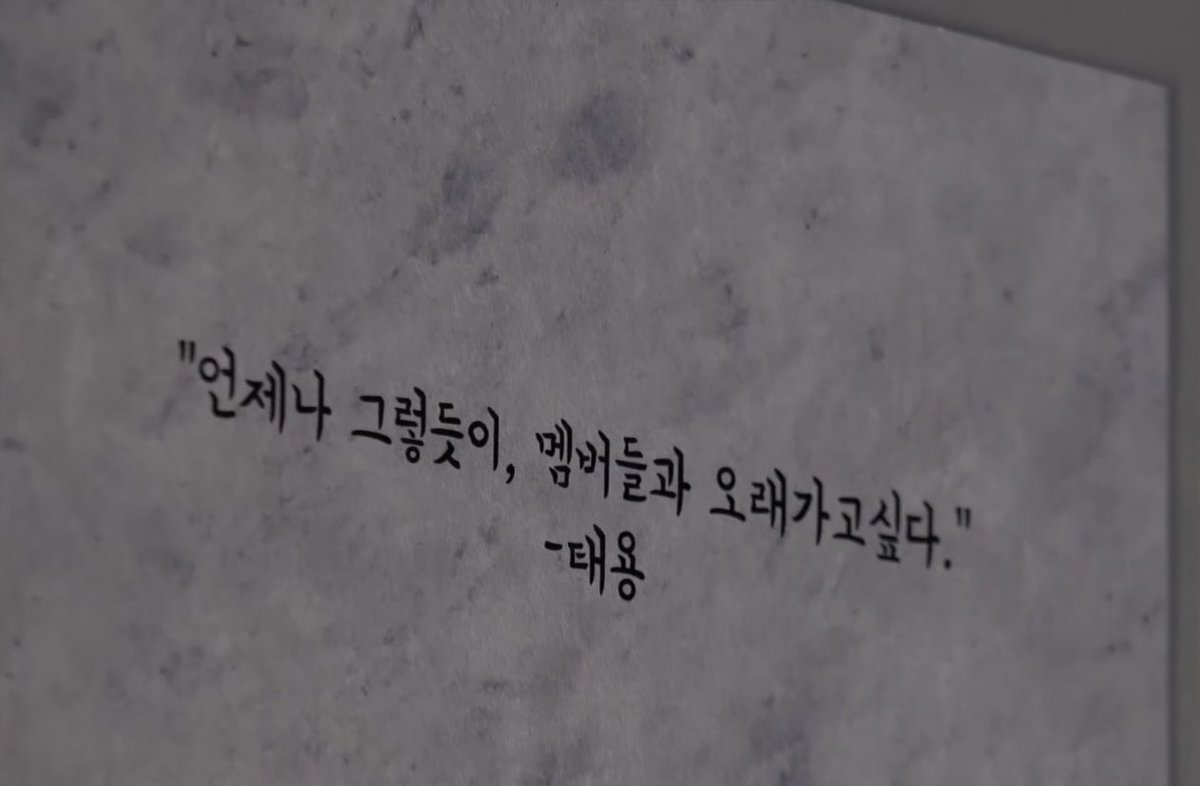 "언제나 그렇듯이, 멤버들과 오래가고싶다."
-태용